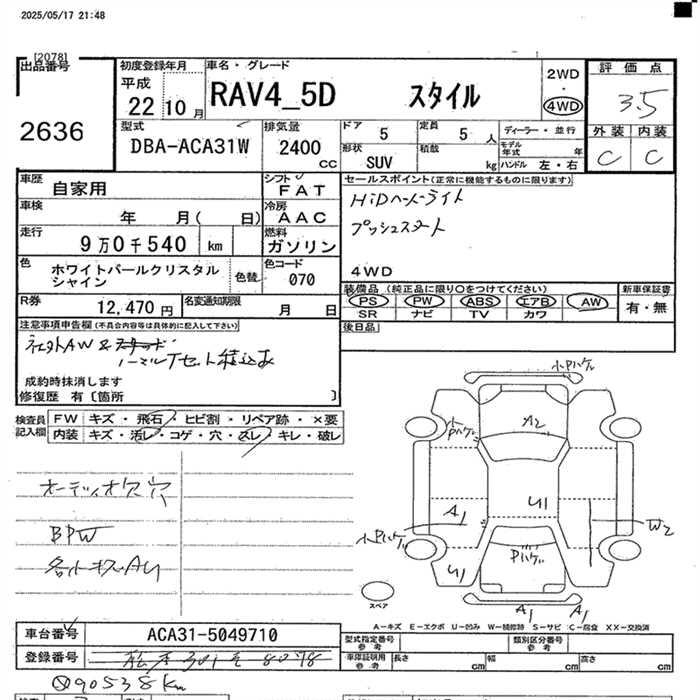 2025/05/17 21:48
[2078]
出品番号
2636
初度登録年月
平成
22 10 月
車名・グレード
RAV4_5D スタイル
2WD
・
4WD
評価点
3.5
外装 内装
C C
型式
DBA-ACA31W
排気量
2400
CC
ドア 5
定員 5 人
形状
SUV
積載
kg
ディーラー・並行
モデル年式 年
ハンドル 左・右
車歴
自家用
シフト
FAT
車検
年 月( 日)
冷房
AAC
走行
9万0千540 km
燃料
ガソリン
色
ホワイトパールクリスタルシャイン
色替
色コード
070
R券
12,470 円
名変通知期限
月 日
セールスポイント(正常に機能するものに限ります)
HiDヘッドライト
プッシュスタート
4WD
装備品 (純正品に限り○をつけてください)
PS PW ABS エアB AW
SR ナビ TV カワ
新車保証書
有・無
後日品
注意事項申告欄(不具合内容等は具体的に記入して下さい)
成約時抹消します
修復歴 有〔箇所 〕
検査員記入欄
FW キズ・飛石・ヒビ割・リペア跡・×要
内装 キズ・汚レ・コゲ・穴・スレ・キレ・破レ
オーディオ欠 穴
BPW
各小キズ・AU
小Pハゲ
小Pハゲ
A2
A1
U1
W2
小Pハゲ
Pハゲ
U1
A1 A1
スペア
A-キズ E-エクボ U-凹み W-補修跡 S-サビ C-腐食 XX-交換済
車台番号
ACA31-5049710
登録番号
型式指定番号
参考
類別区分番号
参考
車庫証明用
参考
長さ cm
幅 cm
高さ cm
90538km